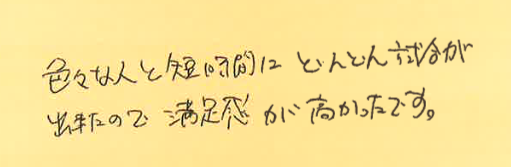 色々な人と短時間にどんどん試合が
出来たので満足感が高かったです。